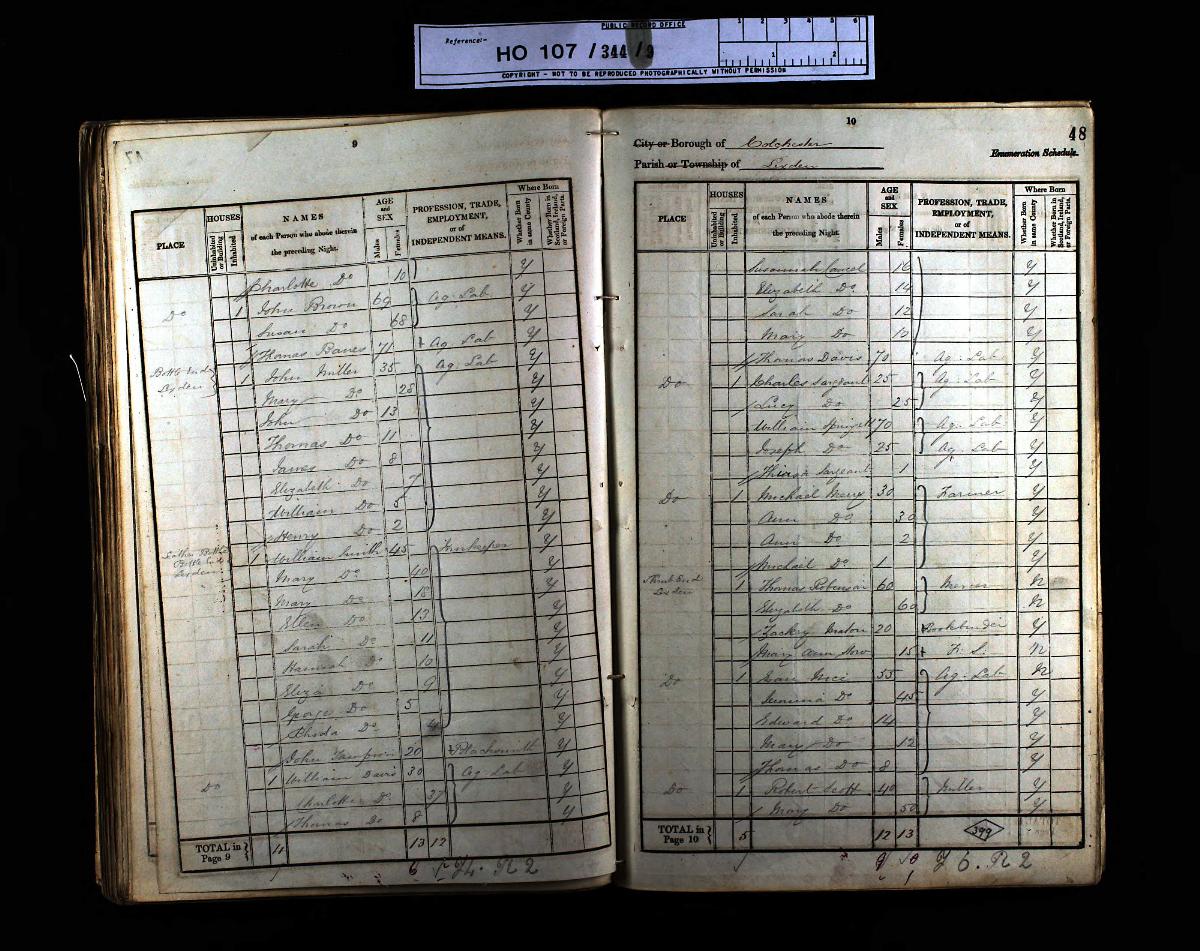 PUBLIC RECORD OFFICE
Reference:-
HO 107 / 344 / 9
COPYRIGHT - NOT TO BE REPRODUCED PHOTOGRAPHICALLY WITHOUT PERMISSION
1 2 3 4 5 6
1 2
9
PLACE HOUSES Uninhabited or Building Inhabited NAMES of each Person who abode therein the preceding Night. AGE and SEX Males Females PROFESSION, TRADE, EMPLOYMENT, or of INDEPENDENT MEANS. Where Born Whether Born in same County Whether Born in Scotland, Ireland, or Foreign Parts.
Charlotte Do 10 Y
Do 1 John Brown 69 Ag. Lab Y
Susan Do 68 Y
Thomas 71 Ag. Lab Y
Lexden 1 John Miller 35 Ag. Lab Y
Mary Do 28 Y
John Do 13 Y
Thomas Do 11 Y
James Do 8 Y
Elizabeth Do 7 Y
William Do 5 Y
Henry Do 2 Y
Lexden 1 William Smith 45 Innkeeper Y
Mary Do 40 Y
Mary Do 15 Y
Ellen Do 13 Y
Sarah Do 11 Y
Hannah Do 10 Y
Eliza Do 9 Y
George Do 5 Y
Do 4 Y
John 20 Blacksmith Y
Do 1 William Davis 30 Ag. Lab Y
Charlotte Do 37 Y
Thomas Do 8 Y
TOTAL in Page 9 4 13 12
10
48
City or Borough of Colchester
Parish or Township of Lexden
Enumeration Schedule.
PLACE HOUSES Uninhabited or Building Inhabited NAMES of each Person who abode therein the preceding Night. AGE and SEX Males Females PROFESSION, TRADE, EMPLOYMENT, or of INDEPENDENT MEANS. Where Born Whether Born in same County Whether Born in Scotland, Ireland, or Foreign Parts.
Susannah 16 Y
Elizabeth Do 14 Y
Sarah Do 12 Y
Mary Do 10 Y
Thomas Davis 70 Ag. Lab Y
Do 1 Charles Sargeant 25 Ag. Lab Y
Lucy Do 25 Y
William 70 Ag. Lab Y
Joseph Do 25 Ag. Lab Y
Sargeant 1 Y
Do 1 Michael 30 Farmer Y
Ann Do 30 Y
Ann Do 2 Y
Michael Do 1 Y
Lexden 1 Thomas Robinson 60 Mercer N
Elizabeth Do 60 N
20 Bookbinder Y
Mary Ann 15 F. S. N
Do 1 55 Ag. Lab N
Jemima Do 45 Y
Edward Do 14 Y
Mary Do 12 Y
Thomas Do 8 Y
Do 1 Robert Scott 40 Y
Mary Do 50 Y
TOTAL in Page 10 5 12 13 399